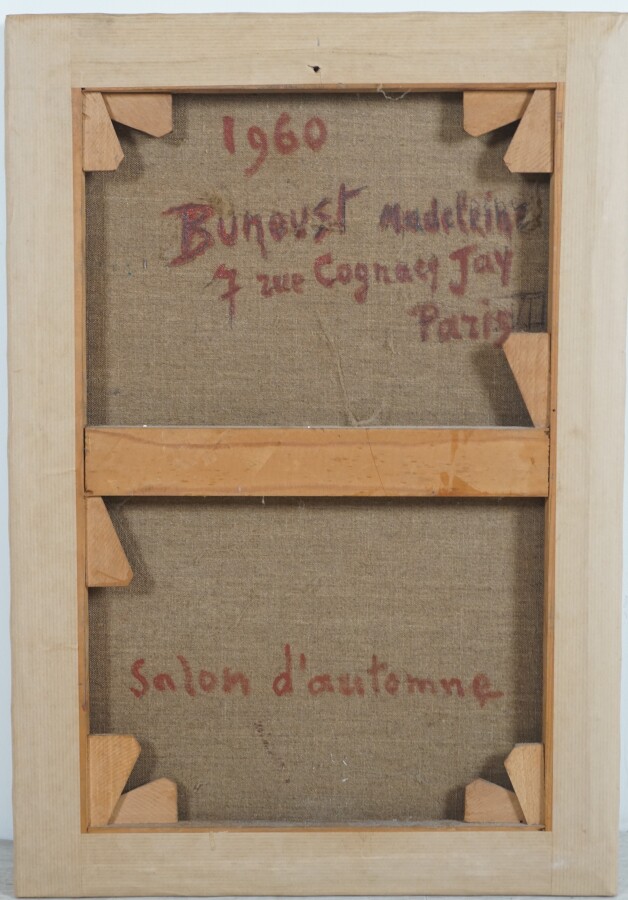 1960
Bunoust Madeleine
7 rue Cognacq Jay
Paris
Salon d'automne